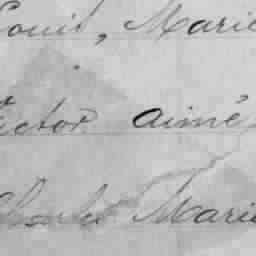 Louis, Marie
Victor aimé
Charles Marie